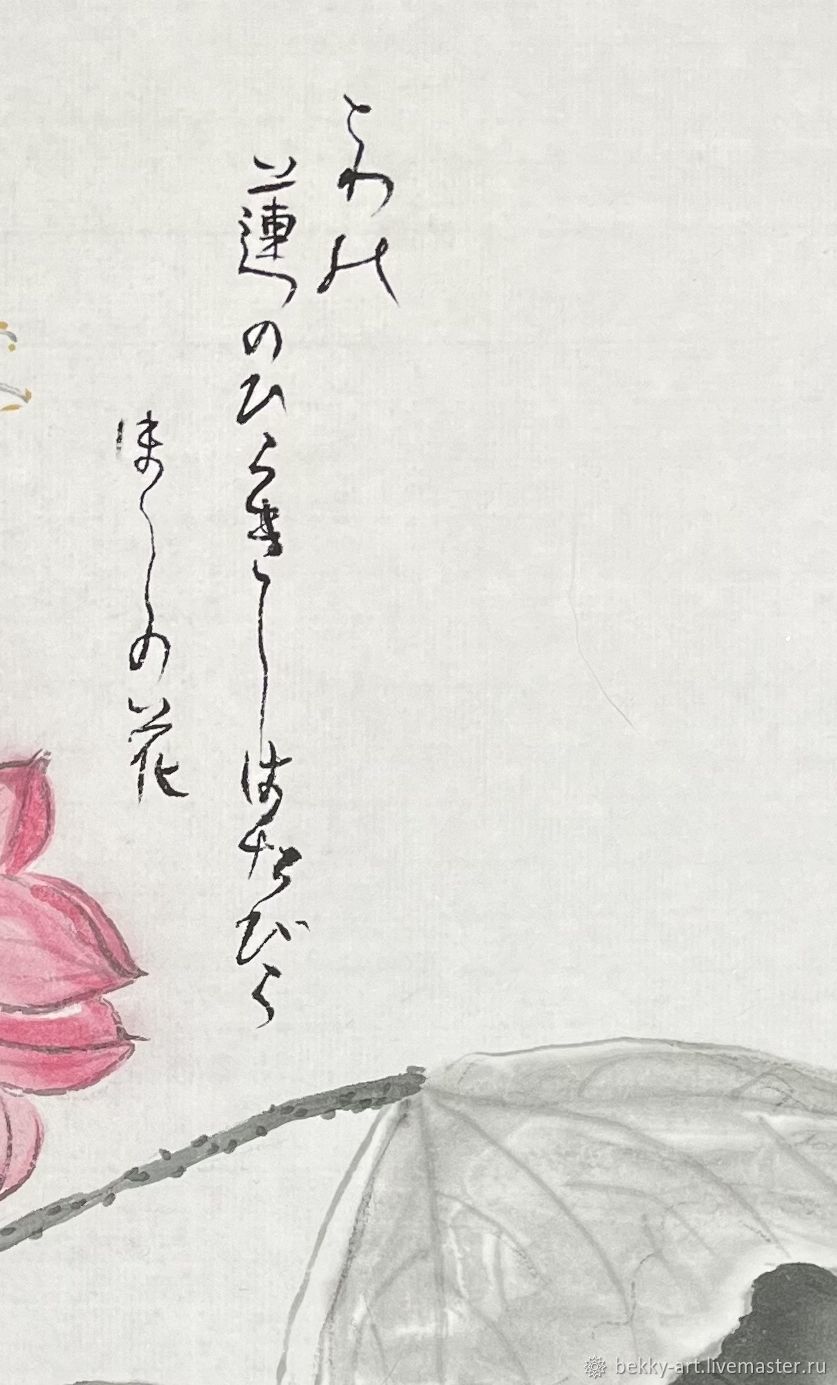 とわ
蓮のひらきしはなびら
の花
bekky-art.livemaster.ru